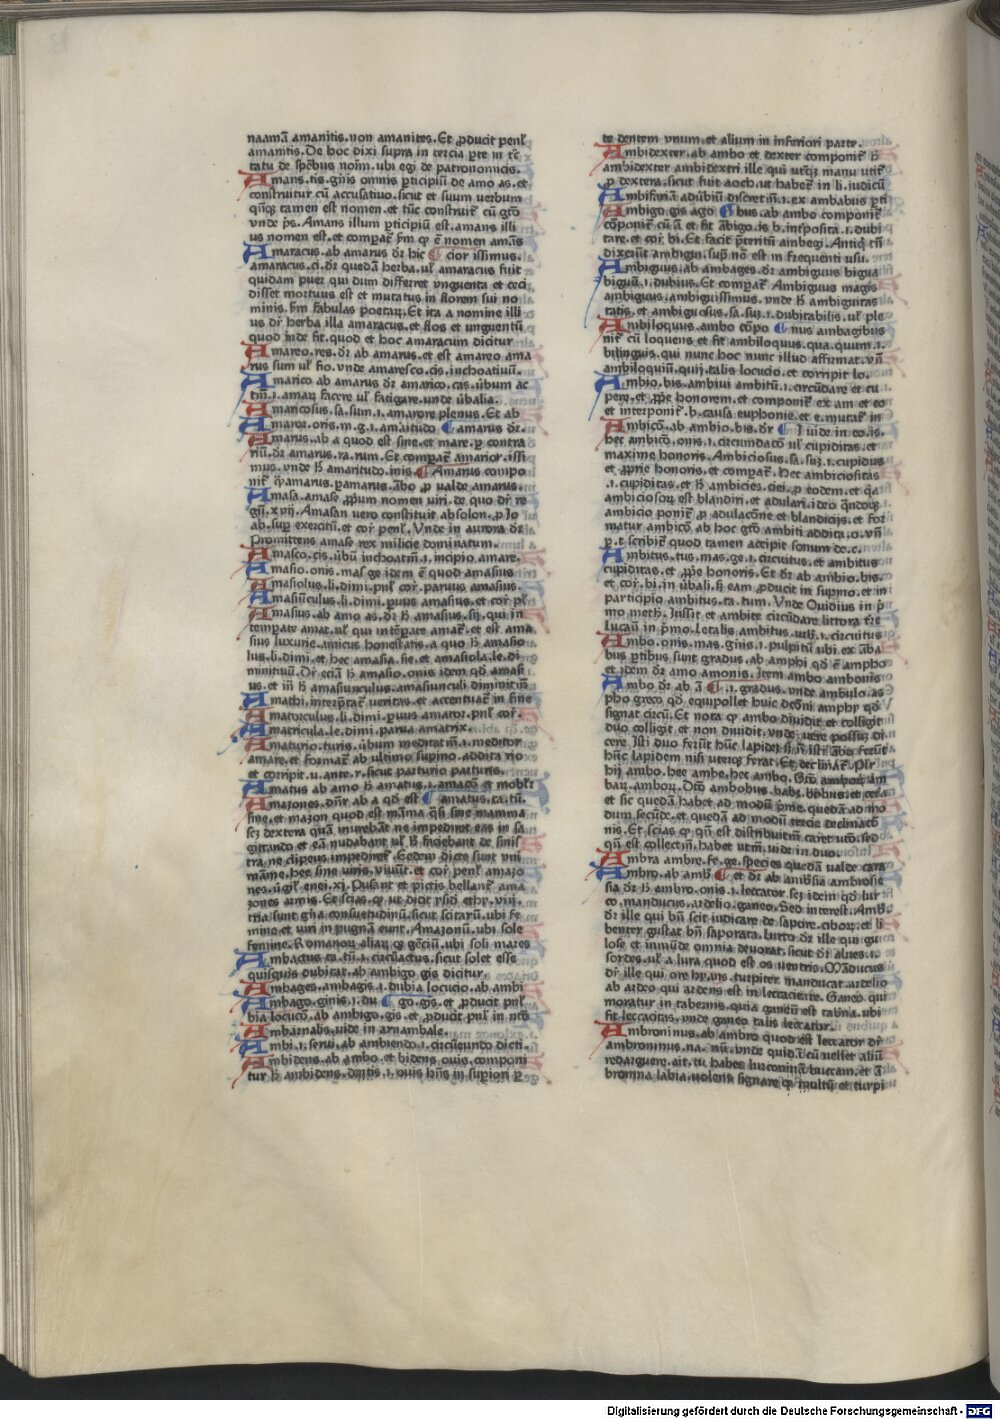 naamā amanitis.non amanites.Et ꝓducit penl̓
amanitis.De hoc dixi supra in tercia ꝑte in tc̄
tatu de sp̄cbus noīm.ubi egi de patronomicis.
Amans.tis.gn̄is omnis ꝑticipiū de amo as.et
construitur cū accusatiuo.sicut et suum uerbum
qn̄qꝫ tamen est nomen.et tūc construit̄ cū gt̄o
vnde ꝑs.Amans illum ꝑticipiū est.amans illi
us nomen est.et compat̄ ẜm ꝙ ē nomen amās
Amaracus.ab amarus dr̄ hic ¶ cior issimus.
amaracus.ci.dr̄ quedā herba.ul̓ amaracus fuit
quidam puer qui dum differret vnguenta et ceci
disset mortuus est et mutatus in florem sui no
minis.ẜm fabulas poetaꝝ.Et ita a nomine illi
us dr̄ herba illa amaracus.et flos et unguentū
quod inde fit.quod et hoc amaracum dicitur
Amareo.res.dr̄ ab amarus.et est amareo ama
rus sum ul̓ fio.vnde amaresco.cis.inchoatiuū.
Amarico ab amarus dr̄ amarico.cas.ūbum ac
tiū.i.amaꝝ facere ul̓ fatigare.unde ūbalia.
Amaricosus.sa.sum.i.amarore plenus.Et ab
Amaror.oris.m.g.i.amaritudo ¶ amarus dr̄.
Amarus.ab a quod est sine.et mare.ꝑ contra
riū.dr̄ amarus.ra.rum.Et compat̄ amarior.issi
mus.vnde h̄ amaritudo.inis.¶ Amarus compo
nit̄ q̄mamarus.ꝑamarus.ābo ꝓ ualde amarus.
Amasa.amase ꝓpium nomen uiri.de quo dr̄ re
gū.xvij.Amasan uero constituit absolon.ꝓ Io
ab.suꝑ exercitū.et cor̄ penl̓.Vnde in aurora dr̄
Promittens amase rex milicie dominatum.
Amasco.cis.ūbū inchoatiū.i.incipio amare.
Amasio.onis.mas̓ ge idem ē quod amasius
Amasiolus.li.dimi.pnl̓ cor̄.paruus amasius.
Amasiūculus.li.dimi.ꝑuus amasius.et cor̄ pl̓
Amasius.ab amo as.dr̄ h̄ amasius.sij.qui in
temꝑate amat.ul̓ qui intēꝑate amat̄.et est ama
sius luxurie.amicus honestatis.a quo h̄ amasio
lus.li.dimi.et hec amasia.sie.et amasiola.le.di
minitiuū.Dr̄ eciā h̄ amasio.onis idem qd̓ amasi
us.et iñ h̄ amasiunculus.amasiunculi diminitiū
Amathi.interp̄tat̄ ueritas.et accentuat̄ in fine
Amatorculus.li.dimi.ꝑuus amator.pnl̓ cor̄.
Amatricula.le.dimi.parua amatrix.
Amaturio.turis.ūbum meditatiū.i.meditor
amare.et format̄ ab ultimo supino.addita rio
et corripit.u.ante.r.sicut parturio parturis.
Amatus ab amo h̄ amatus.i.amacō et mobl̓r
Amazones.dn̄r ab a qd̓ est ¶ amatus.ta.tū.
sine.et mazon quod est māma q̄si sine mamma
scꝫ dextera quā inurebāt ne impediret eas in sa
gittando et eā nudabant ul̓ h̄ fugebant de sinis
tra ne clipeus impediret̄.Eedem dicte sunt vni
māne.hee sine uiris.viuūt.et cor̄ penl̓ amazo
nes.ūgil̓ enei.xj.Pulsant et pictis bellant̄ ama
zones armis.Et scias.ꝙ ut dicit ysid̓ ethy.viij.
tria sunt gn̄a consuetudinū.sicut scitarū.ubi fe
mine et uiri in pugnā eunt.Amazonū.ubi sole
femine.Romanoꝝ aliaꝝ ꝗ gēciū.ubi soli mares
Ambactus.ta.tū.i.circūactus.sicut solet esse
quisquis dubitat.ab ambigo gis dicitur.
Ambages.ambagis.i.dubia locucio.ab ambi
Ambago.ginis.i.du ¶ go.gis.et ꝓducit pnl̓
bia locucō.ab ambigo.gis.et ꝓducit pnl̓ in nt̄o
Ambarnalis.uide in arnambale.
Ambi.i.serui.ab ambiendo.i.circūeundo dicti.
Ambidens.ab ambo.et bidens.ouis.componi
tur h̄ ambidens.dentis.i.ouis hn̄s in suꝑiori ꝑ
te dentem vnum.et alium in inferiori parte.
Ambidexter.ab ambo et dexter componit̄ h̄
ambidexter ambidextri ille qui utrꝫqꝫ manu utit̄
ꝓ dextera.sicut fuit aoch.ut habet̄ in li.iudicū
Ambifariā adūbiū discretiū.i.ex ambabus ꝑti
Ambigo gis ago ¶ bus.ab ambo componit̄
cōponit̄ cū ā et fit ābigo.is b.int̄posita.i.dubi
tare.et cor̄ bi.Et facit p̄teritū ambegi.Antiq̄ tn̄
dixerūt ambigui.sup̄ nō est in frequenti usu.
Ambiguus.ab ambages.dr̄ ambiguus bigua
biguū.i.dubius.Et compat̄ Ambiguus magis
ambiguus.ambiguissimus.vnde h̄ ambiguitas
tatis.et ambiguosus.sa.suꝫ.i.dubitabilis.ul̓ ple
Ambiloquus.ambo cōpo ¶ nus ambagibus
nit̄ cū loquens et fit ambiloquus.qua.quum.i.
bilinguis.qui nunc hoc nunc illud affirmat.vn̄
ambiloquiū.quij.talis locucio.et corripit lo.
Ambio.bis.ambiui ambitū.i.circūdare et cu
ꝑe.et ꝓpe honorem.et componit̄ ex am et eo
et interponit̄ b.causa euphonie.et e.mutat̄ in
Ambicō.ab ambio.bis.dr̄ ¶ i uide in eo.is.
hec ambicō.onis.i.circumdacō ul̓ cupiditas.et
maxime honoris.Ambiciosus.sa.suꝫ.i.cupidus
et ꝓprie honoris.et compat̄.Hec ambiciositas
.i.cupiditas.et h̄ ambicies.ciei.ꝓ eodem.et q̄a
ambiciosoꝝ est blandiri.et adulari.ideo q̄ndoqꝫ
ambicio ponit̄ ꝓ adulacōne et blandicijs.et for
matur ambicō.ab hoc gt̄o ambiti addita.o.vn̄
ꝑ.t.scribit̄ quod tamen accipit sonum de.c.
Ambitus.tus.mas.ge.i.circuitus.et ambitus
cupiditas.et ꝓpe honoris.Et dr̄ ab ambio.bis.
et cor̄.bi.in ūbali.s̄ eam ꝓducit in supīno.et in
participio ambitus.ta.tum.Vnde Ouidius in p̄
mo meth.Iussit et ambite circūdare littora tr̄e
Lucan̄ in p̄mo.Letalis ambitus.urb̓.i.circuitus
Ambo.onis.mas.gn̄is.i.pulpitū ubi ex āba
bus ꝑtibus sunt gradus.ab amphi qd̓ ē ampho
et idem dr̄ amo amonis.Item ambo ambonis
Ambo dr̄ ab ā ¶ .i.gradus.vnde ambulo as
pho greco qd̓ equipollet huic dcōni amphy qd̓
signat circū.Et nota ꝙ ambo diuidit et colligit
duo colligit et non diuidit.vnde uere possuꝫ di
cere Isti duo ferūt hūc lapideꝫ si n̄ isti ābo ferūt
hūc lapidem nisi uterqꝫ ferat.Et declinat̄.Plr̄
hij ambo.hee ambe.hec ambo.Gt̄o amboꝝ am
baꝝ.amboꝝ.Dt̄o ambobus.babꝫ.bobus.et cet̓a
et sic quedā habet ad modū p̄me.quedā ad mo
dum secūde.et quedā ad modū tercie declinacō
nis.Et scias ꝙ qn̄ est distributiū caret utō.sed
qn̄ est collectiū.habet utm̄.uide in duo.
Ambra ambre.fe.ge.species quedā valde cara
Ambro.ab amb̓ ¶ et dr̄ ab ambrosia ambrosie
sia dr̄ h̄ ambro.onis.i.leccator scꝫ idem qd̓ lur
co.manducus.ardelio.ganeo.Sed interest.Amb̓.
dr̄ ille qui bn̄ scit iudicare de sapore.ciboꝝ.et li
benter gustat bn̄ saporata.Lurco dr̄ ille qui gu
lose et inmūde omnia deuorat.sicut dr̄ alues.i.
sordes.ul̓ a lura quod est os uentris.Māducus
dr̄ ille qui ore hyans.turpiter manducat.ardelio
ab ardeo qui ardens est in leccacitate.Ganeo qui
moratur in tabernis.quia ganeū est tab̄na.ubi
fit leccacitas.vnde ganeo talis leccator.
Ambroninus.ab ambro quod est leccator dr̄
ambroninus.na.nū.vnde quidā cū uellet aliū
redarguere.ait.tu habes lurconinā buccam.et ā
bronina labia.uolens signare ꝙ multū et turpi
Digitalisierung gefördert durch die Deutsche Forschungsgemeinschaft - DFG